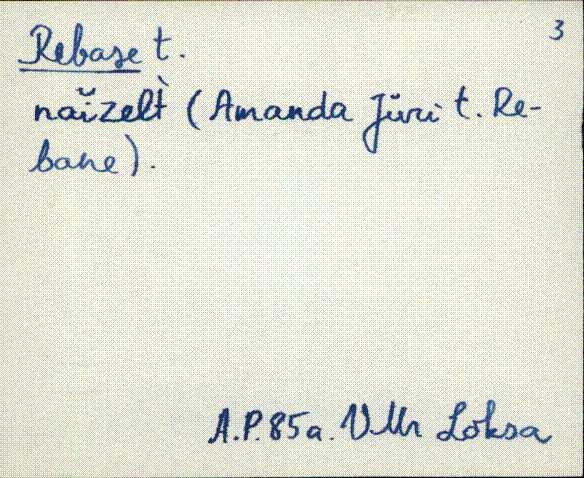 3
Rebase t.
naĭzelt̀ (Amanda Jüri t. Re-
bane).
A.P. 85a. VMr Loksa